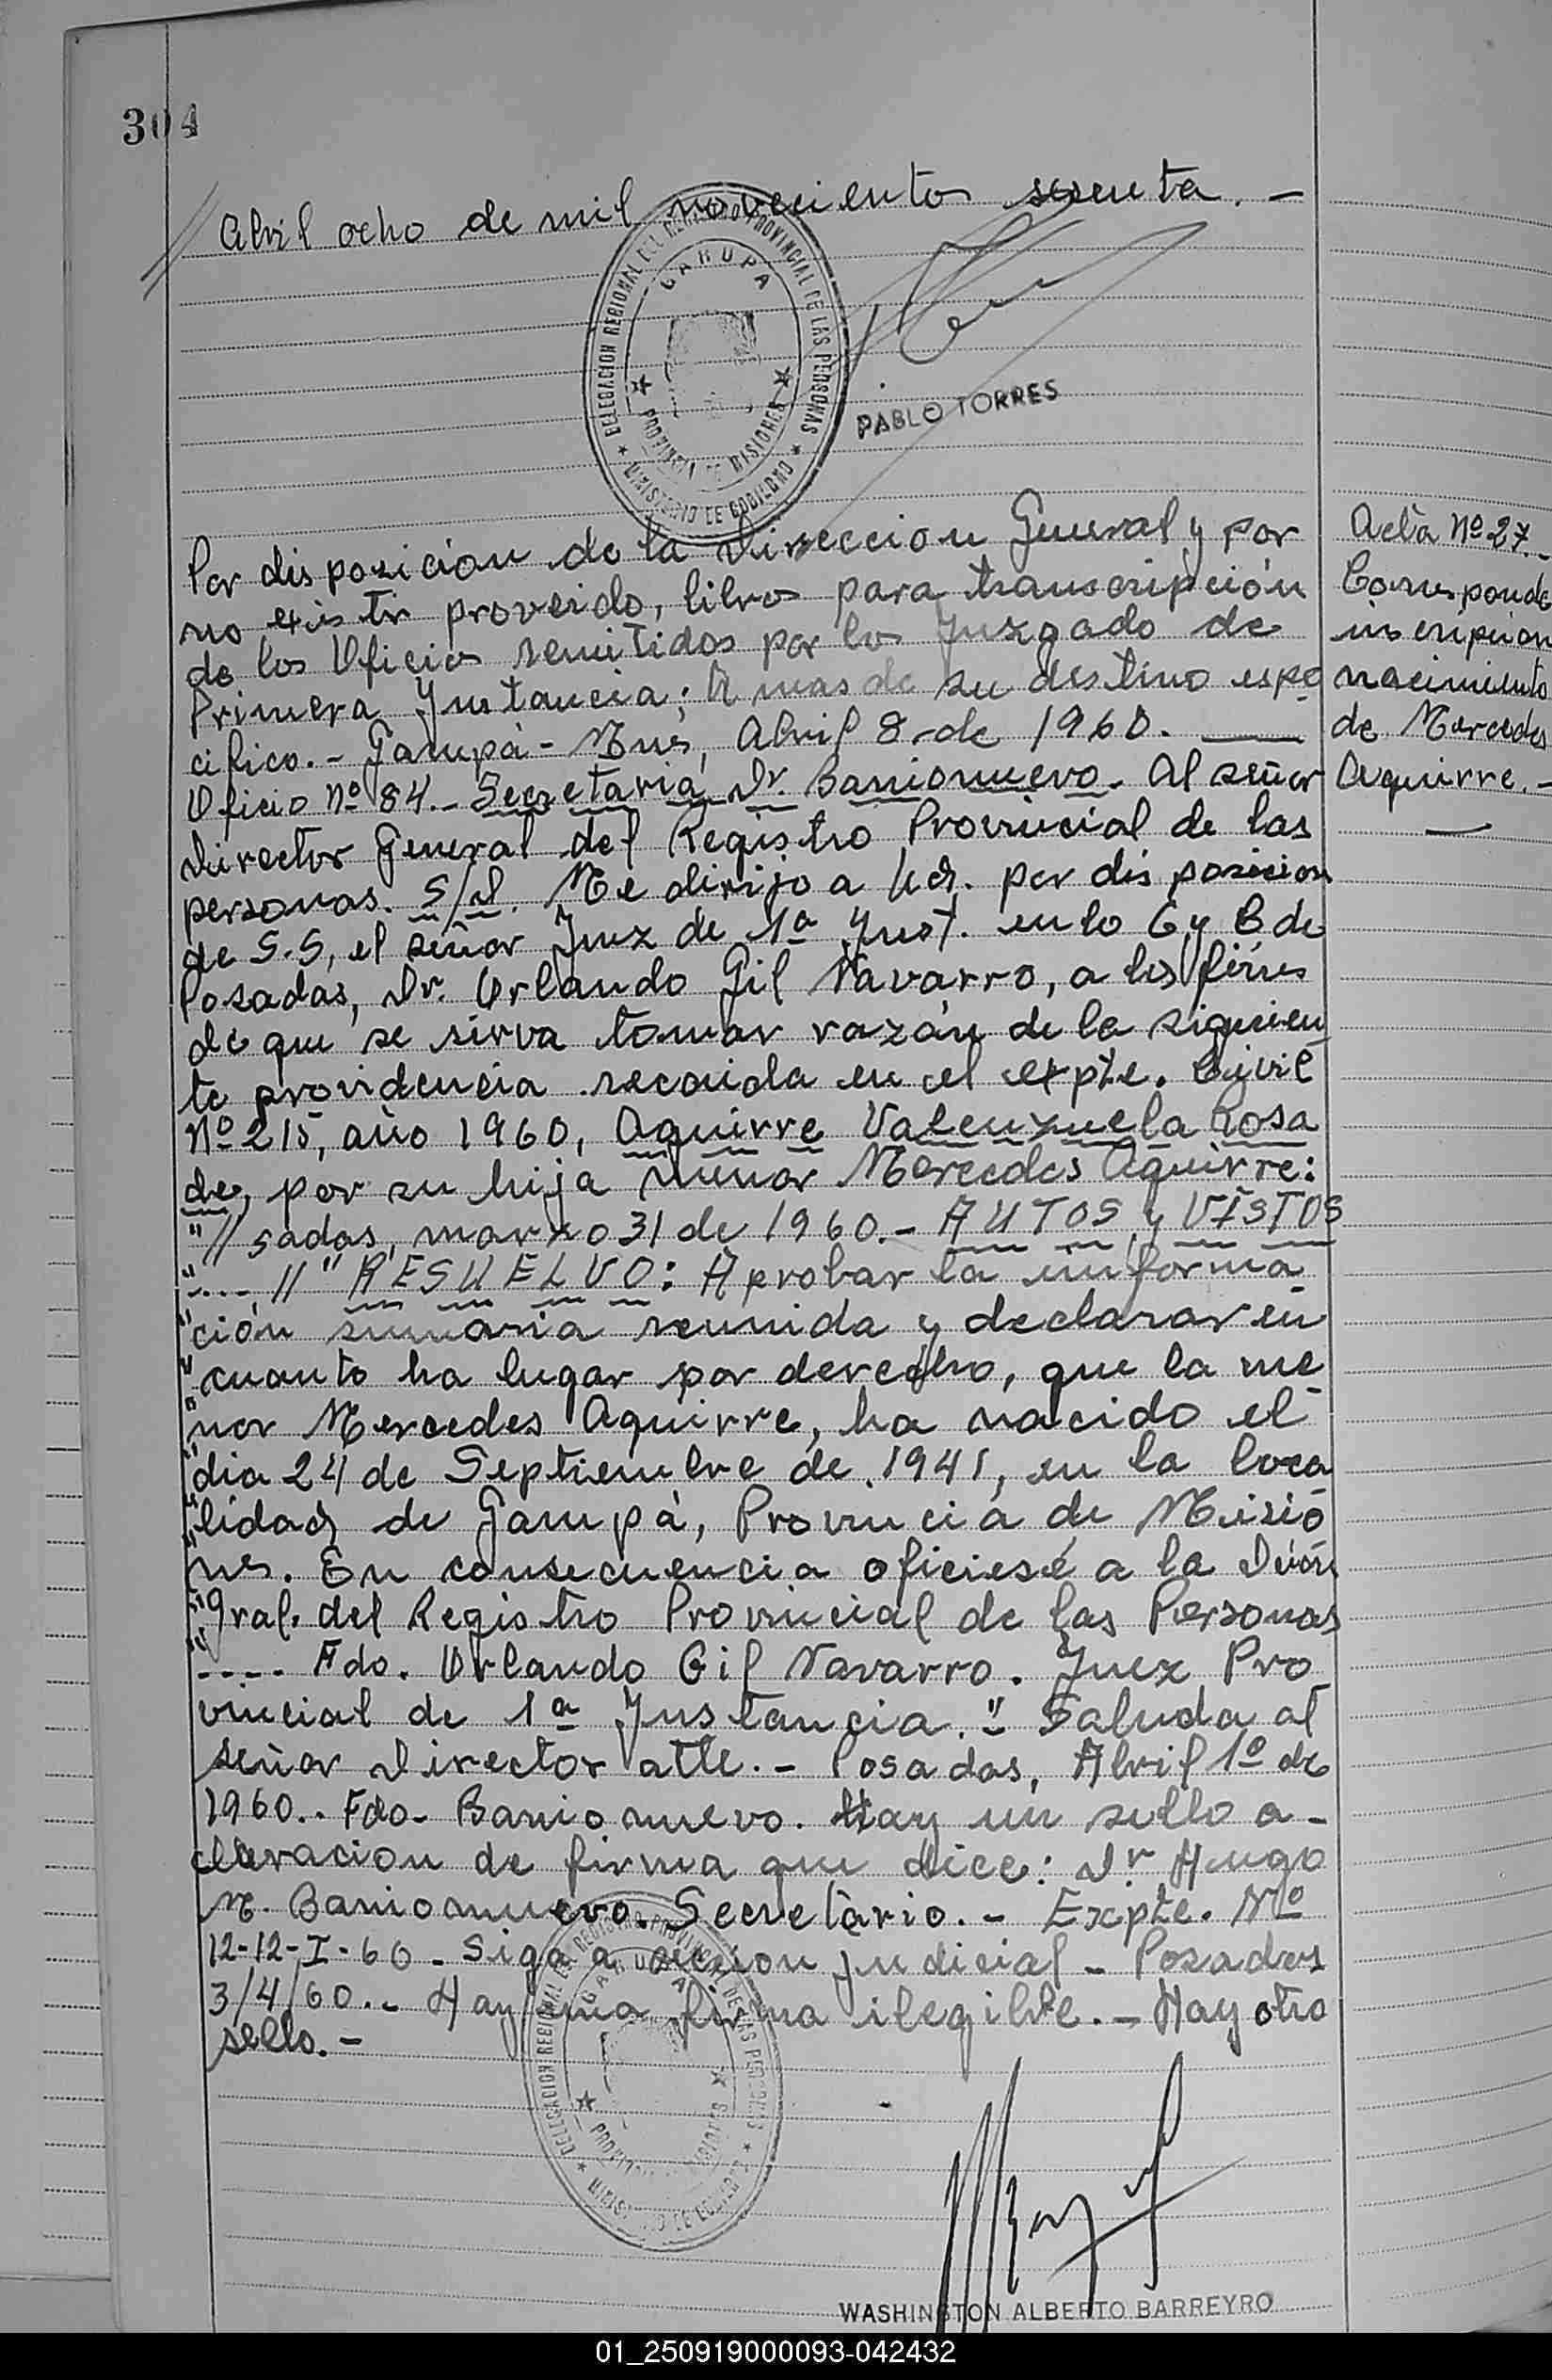 304
// Abril ocho de mil novecientos sesenta. -
DELEGACION REGIONAL DEL REGISTRO PROVINCIAL DE LAS PERSONAS
GARUPA
PROVINCIA DE MISIONES
MINISTERIO DE GOBIERNO
PABLO TORRES
Por disposición de la Dirección General y por
no existir proveido, libros para transcripción
de los Oficios remitidos por los Juzgado de
Primera Instancia; A mas de su destino espe
cifico. - Garupá - Mnes, Abril 8 de 1960. —
Oficio Nº 84. - Secretaria Dr. Barrionuevo. Al señor
Director General del Registro Provincial de las
personas. S/D. Me dirijo a Ud. por disposicion
de S.S, el señor Juez de 1ª Inst. en lo C y C de
Posadas, Dr. Orlando Gil Navarro, a los fines
de que se sirva tomar razón de la siguien
te providencia recaida en el expte. Civil
Nº 215, año 1960, Aguirre Valenzuela Rosa
de, por su hija menor Mercedes Aguirre:
"//sadas, marzo 31 de 1960. - AUTOS y VISTOS
"...., //" RESUELVO: Aprobar la informa
"ción sumaria reunida y declarar en
"cuanto ha lugar por derecho, que la me
"nor Mercedes Aguirre, ha nacido el
"dia 24 de Septiembre de 1941, en la loca
"lidad de Garupá, Provincia de Misio
"nes. En consecuencia oficiesé a la Dción
"Gral. del Registro Provincial de las Personas
".... Fdo. Orlando Gil Navarro. Juez Pro
vincial de 1ª Instancia." Saluda al
señor Director atte. - Posadas, Abril 1º de
1960.. Fdo- Barrionuevo. Hay un sello a-
claracion de firma que dice: Dr Hugo
M. Barrionuevo. Secretario. - Expte. Nº
12-12-I-60 - Siga a seccion judicial - Posadas
3/4/60. - Hay una firma ilegible. - Hay otro
sello. -
Acta Nº 27.-
Corresponde
inscripcion
nacimiento
de Mercedes
Aguirre. -
DELEGACION REGIONAL DEL REGISTRO PROVINCIAL DE LAS PERSONAS
GARUPA
PROVINCIA DE MISIONES
MINISTERIO DE GOBIERNO
WASHINGTON ALBERTO BARREYRO
01_250919000093-042432